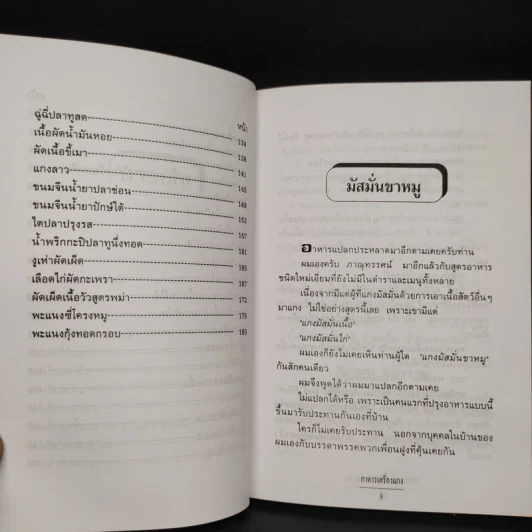 หน้า
ฉู่ฉี่ปลาทูสด 134
เนื้อผัดน้ำมันหอย 138
ผัดเนื้อขี้เมา 141
แกงลาว 145
ขนมจีนน้ำยาปลาช่อน 149
ขนมจีนน้ำยาปักษ์ใต้ 153
ไตปลาปรุงรส 157
น้ำพริกกะปิปลาทูนึ่งทอด 161
งูเห่าผัดเผ็ด 165
เลือดไก่ผัดกะเพรา 167
ผัดเผ็ดเนื้อวัวสูตรพม่า 172
พะแนงซี่โครงหมู 176
พะแนงกุ้งทอดกรอบ 180
มัสมั่นขาหมู
อาหารแปลกประหลาดมาอีกตามเคยครับท่าน
ผมเองครับ ภาณุทรรศน์ มาอีกแล้วกับสูตรอาหาร
ชนิดใหม่เอี่ยมที่ยังไม่มีในตำราและเมนูทั้งหลาย
เนื่องจากมีแต่ผู้ที่แกงมัสมั่นด้วยการเอาเนื้อสัตว์อื่นๆ
มาแกง ไม่ใช่อย่างสูตรนี้เลย เพราะเขามีแต่
"แกงมัสมั่นเนื้อ"
"แกงมัสมั่นไก่"
ผมเองก็ยังไม่เคยเห็นท่านผู้ใด "แกงมัสมั่นขาหมู"
กันสักคนเดียว
ผมจึงพูดได้ว่าผมมาแปลกอีกตามเคย
ไม่แปลกได้หรือ เพราะเป็นคนแรกที่ปรุงอาหารแบบนี้
ขึ้นมารับประทานกันเองที่บ้าน
ใครก็ไม่เคยรับประทาน นอกจากบุคคลในบ้านของ
ผมเองกับบรรดาพรรคพวกเพื่อนฝูงที่คุ้นเคยกัน
อาหารเครื่องแกง
9